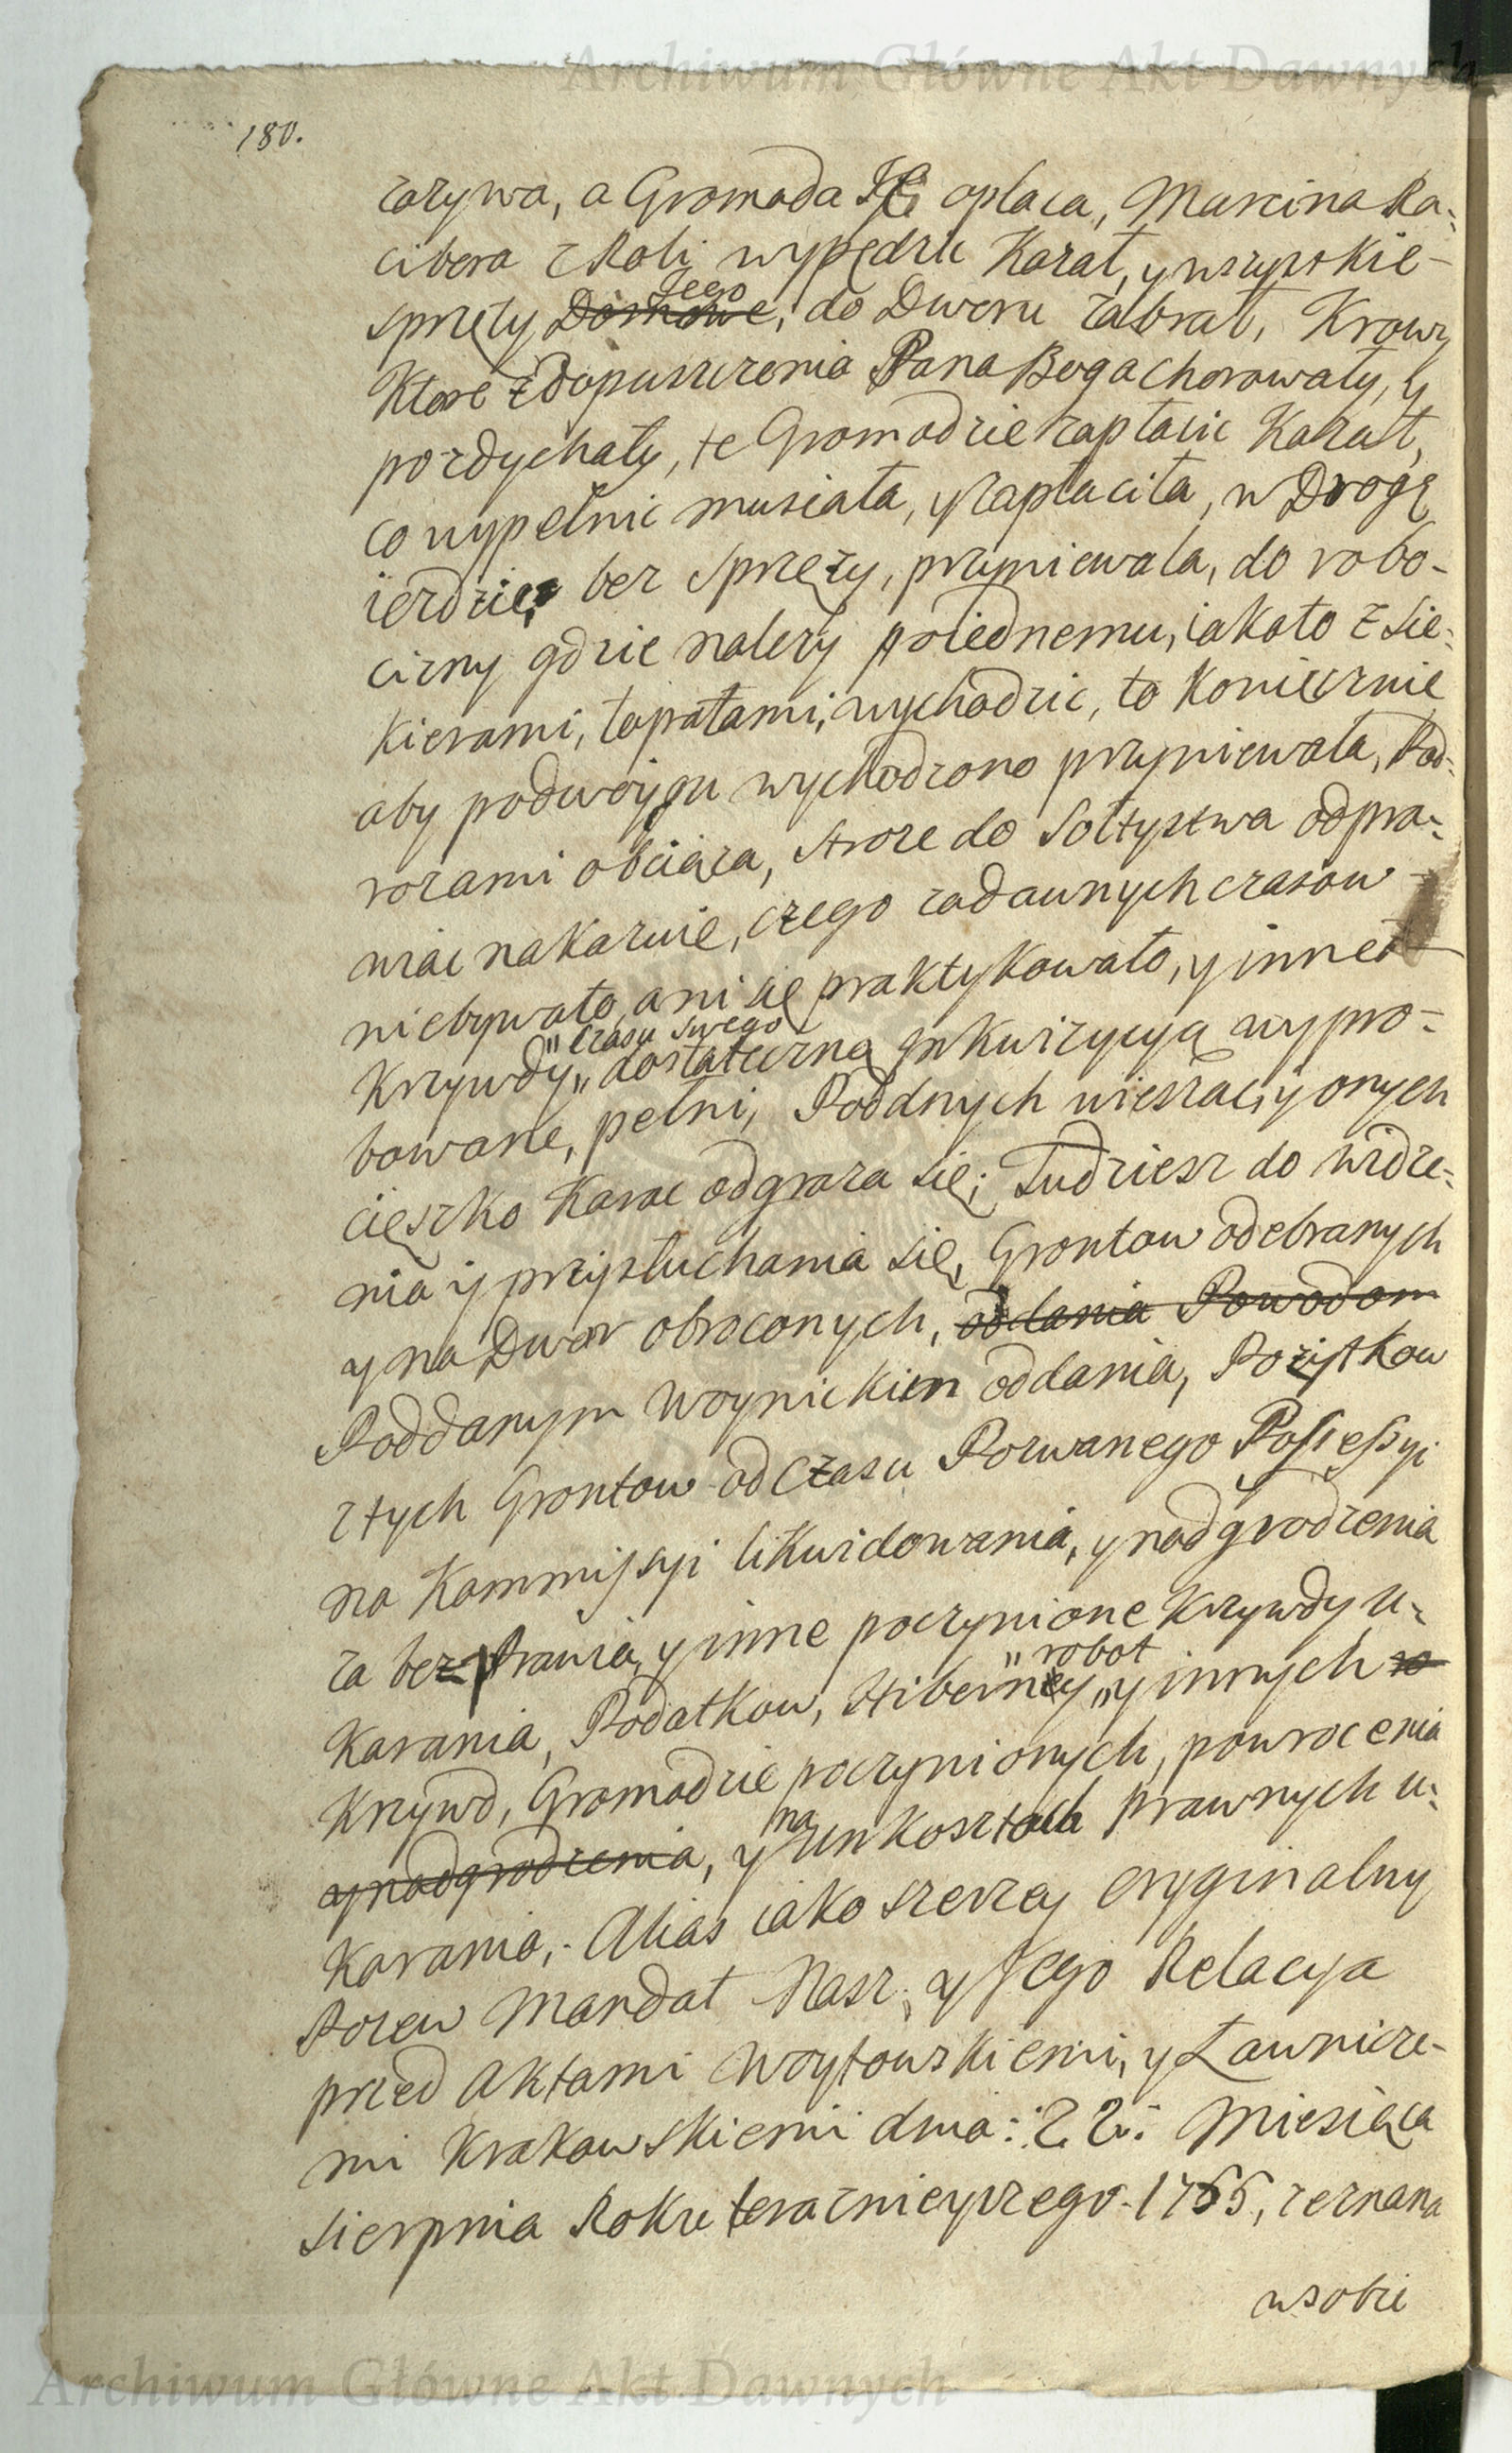 Archiwum Główne Akt Dawnych
180.
zazywa, a Gromada JE oplaca, Marcina Ra-
cibora z Roli wypędzic Kazał, y wszystkie
sprzęty Domowe, Jego do Dworu zabrał, Krowy
Ktore z dopuszczenia Pana Boga chorowały, y
pozdychały, te Gromadzie zapłacic Kazał,
co wypełnic musiała, y zapłaciła, w Drogę
iezdzic, bez sprzęzy, przyniewala, do robo-
cizny gdzie nalezy poiednemu, iakoto z sie-
kierami, łopatami, wychodzic, to Koniecznie
aby podwoygu wychodzono przyniewala, Pod-
wozami obciąza, stroze do Sołtystwa odpra-
wiac nakazuie, czego zadawnych czasow
niebywało, ani się praktykowało, y inne
Krzywdy " czasu swego " dostateczną inkwizycyą wypro-
bowane, pełni, Poddnych wieszac, y onych
cięszko Karac odgraza się; Tudziesz do widze-
nia y przysłuchania się, Grontow odebranych
y na Dwor obroconych, oddania Powodom
Poddanym Woynickim oddania, Pozytkow
z tych Grontow od czasu Porwanego Possessyi
na Kommissyi likwidowania, y nadgrodzenia
za bezprawia, y inne poczynione Krzywdy u-
karania, Podatkow, Hiberney " robot " y innych
Krzywd, Gromadzie poczynionych, powrocenia
y nadgrodzenia, y na Unkosztach prawnych u-
karania, Alias iako szerzey oryginalny
Pozew Mandat Nasz, y Jego Relacya
przed Aktami Woytowskiemi, y Ławnicze-
mi Krakowskiemi dnia: 22: Miesiąca
Sierpnia Roku teraznieyszego 1766, zeznana
w sobie
Archiwum Główne Akt Dawnych